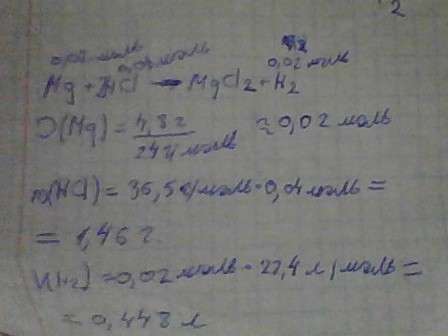 2
0,02 моль 0,04 моль 0,02 моль
Mg + 2HCl → MgCl2 + H2
(Mg) = 4,8 г / 24 г/моль ≈ 0,02 моль
m(HCl) = 36,5 г/моль · 0,04 моль =
= 1,46 г.
V(H2) = 0,02 моль · 22,4 л/моль =
= 0,448 л